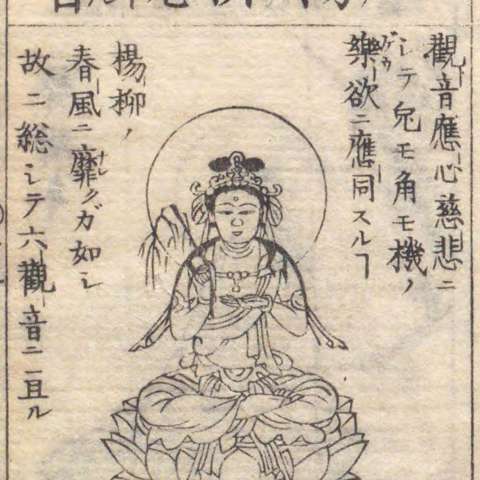 觀音應心慈悲ニ
シテ兔モ角モ機ノ
樂欲ニ應同スルヿ
楊柳ノ
春風ニ靡クガ如シ
故ニ総シテ六觀音ニ亘ル